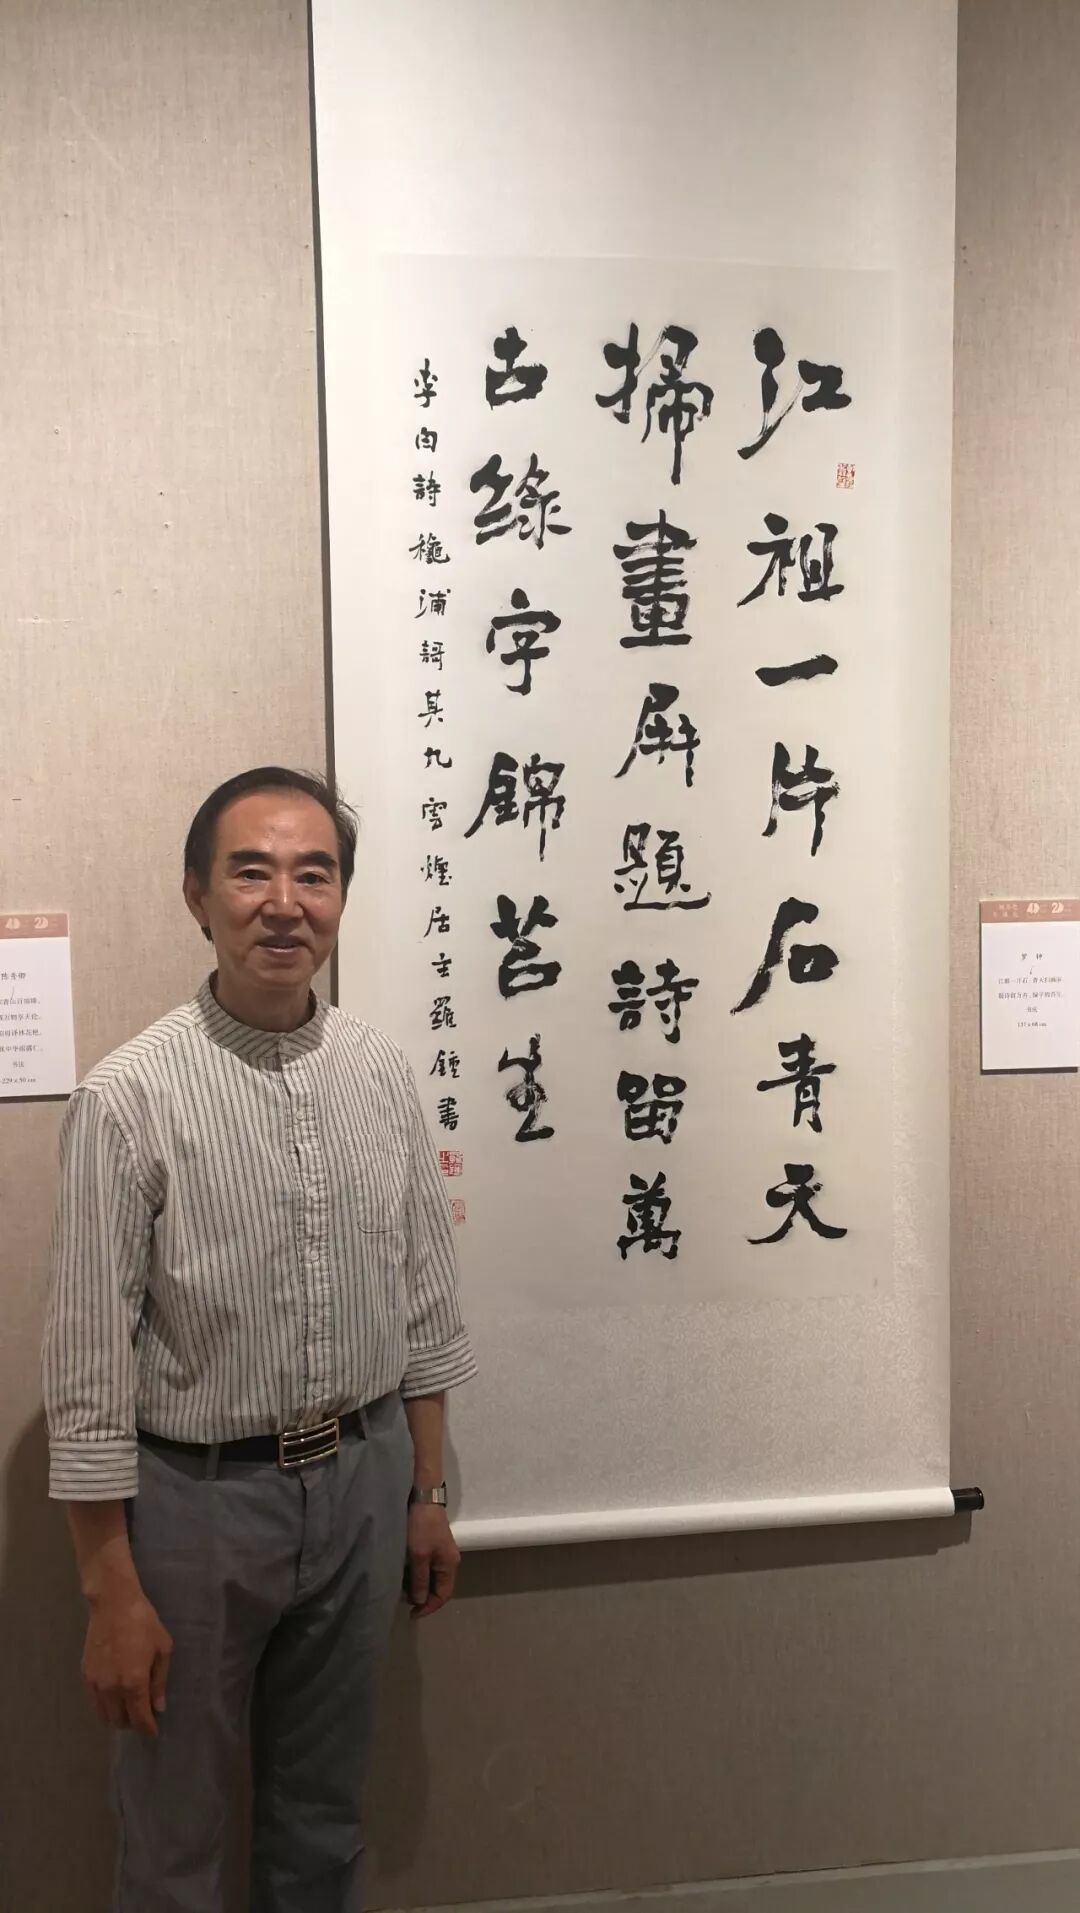 江祖一片石青天
掃畫屏題詩留萬
古綠字錦苔生
李白詩穐浦謌其九雲煙居主羅鍾書
罗 钟
江祖一片石，青天扫画屏
题诗留万古，绿字锦苔生
书法
137 x 68 cm
陈秀卿
书法
229 x 50 cm